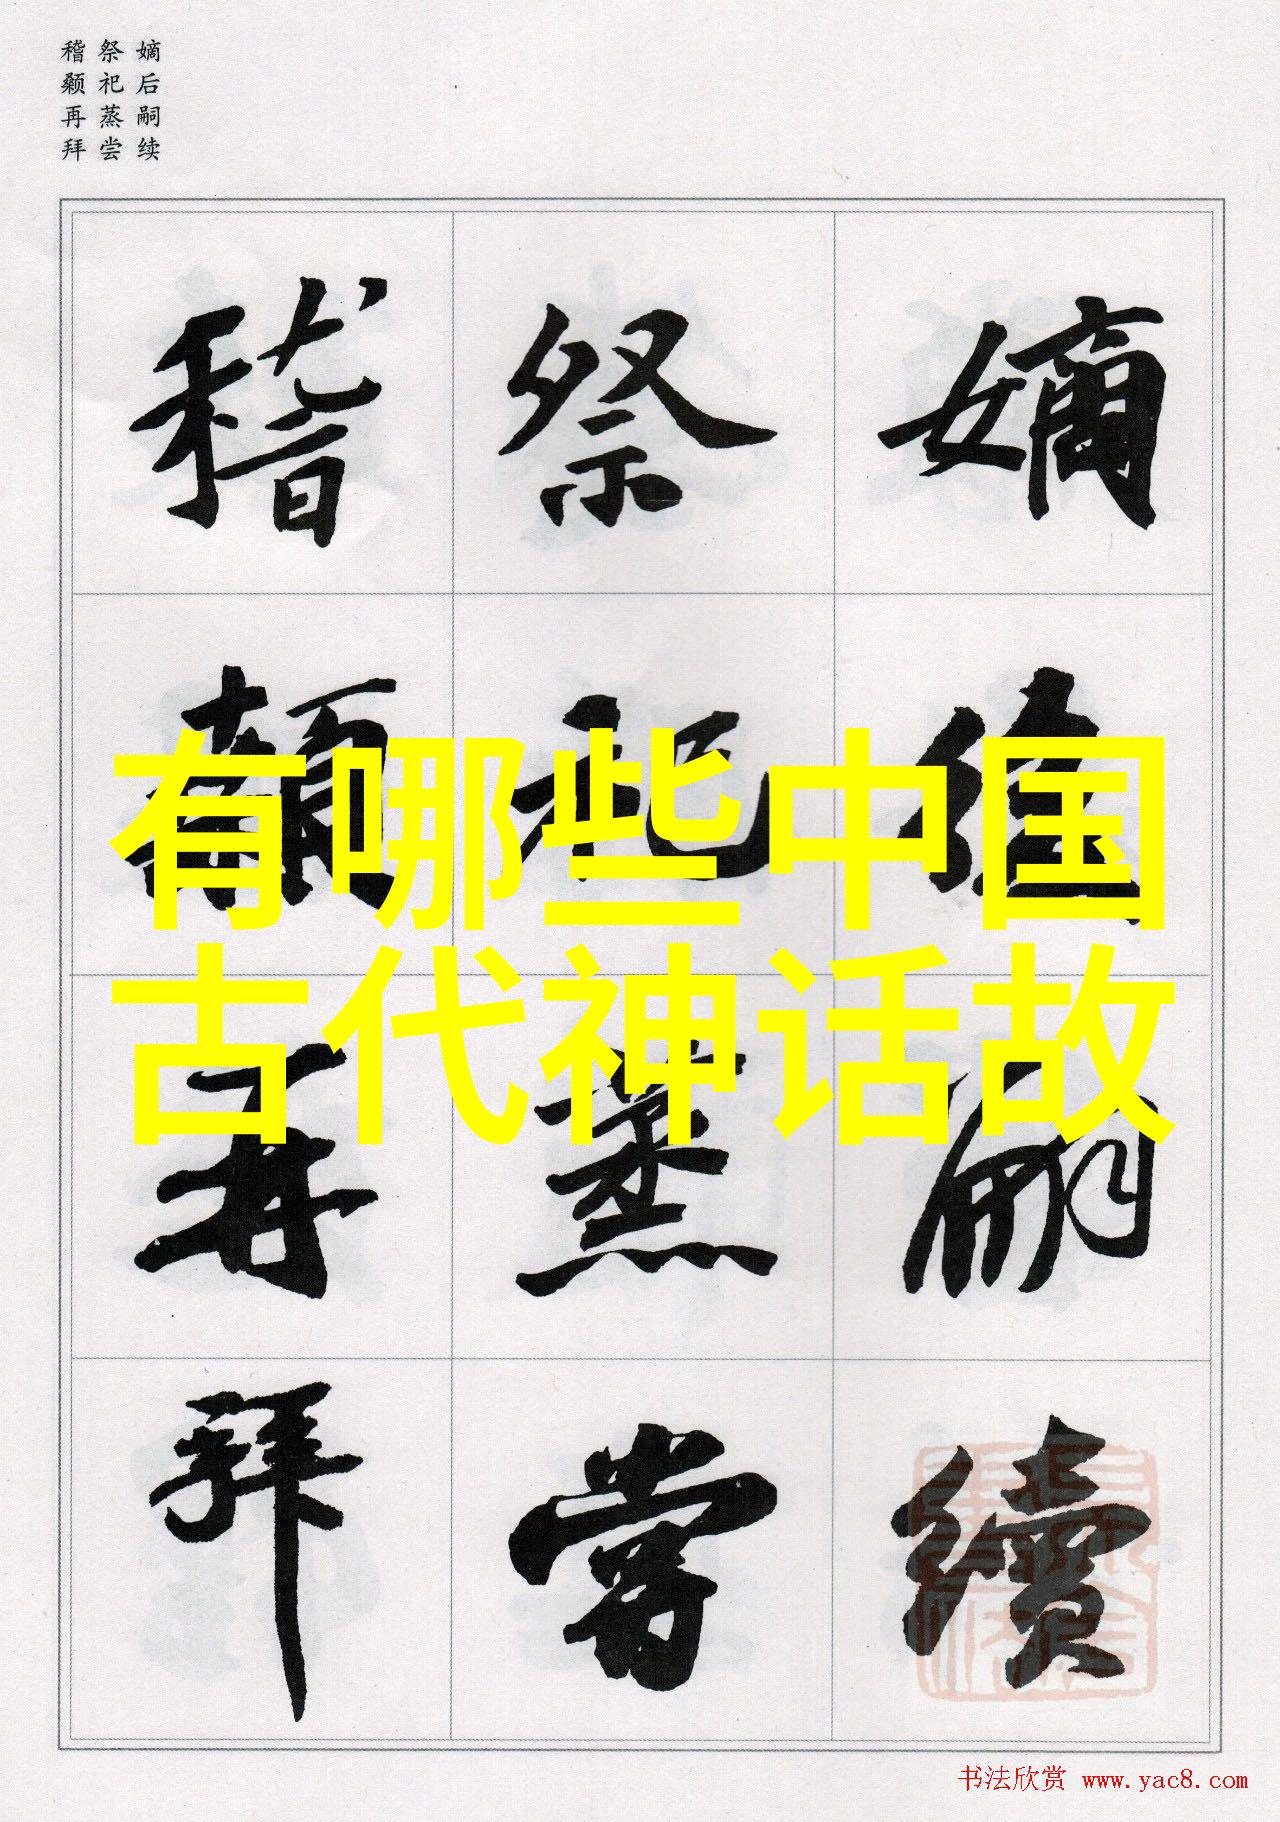 嫡后嗣续
祭祀蒸尝
稽颡再拜
嫡后嗣續
祭祀蒸嘗
稽顙再拜
有哪些中国
古代神话故
书法欣赏 www.yac8.com